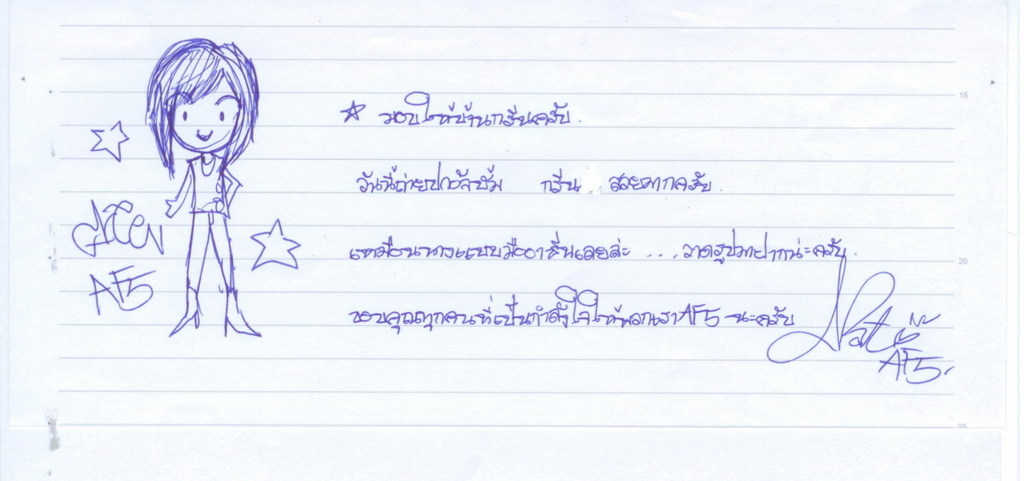 ☆ มอบให้บ้านกรีนครับ.
วันนี้ถ่ายปกอัลบั้ม กรีน .. สวยมากครับ.
เหมือนนางแบบมืออาชีพเลยล่ะ ... วาดรูปมาฝากน่ะครับ.
ขอบคุณทุกคนที่เป็นกำลังใจให้พวกเรา AF5 นะครับ
Green
AF5
Nat
AF5.
15
20